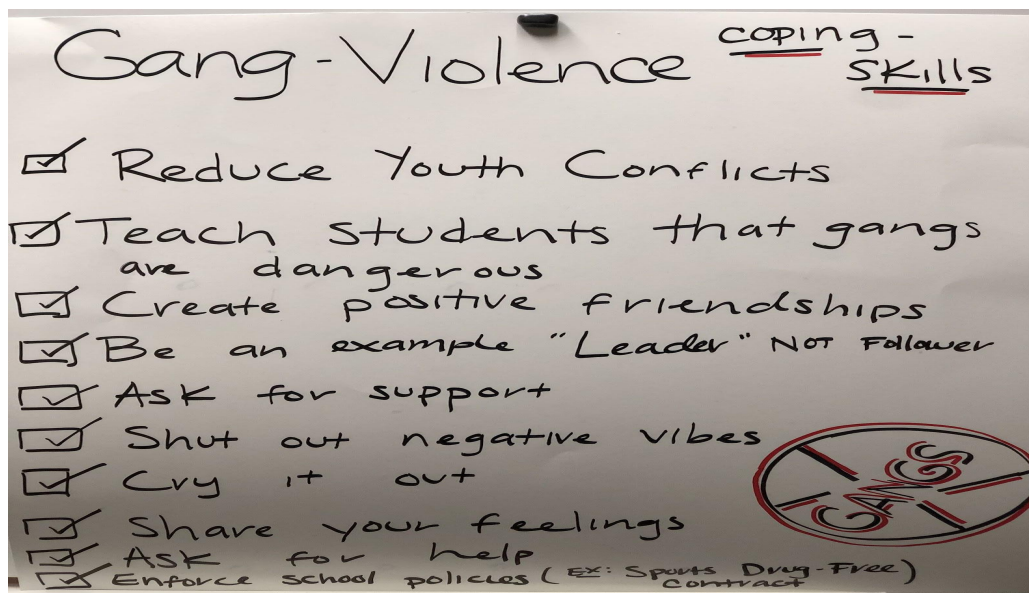 Gang-Violence
coping-
skills
Reduce Youth Conflicts
Teach students that gangs
are dangerous
Create positive friendships
Be an example "Leader" NOT Follower
Ask for support
Shut out negative vibes
Cry it out
Share your feelings
Ask for help
Enforce school policies (EX: Sports Drug-Free)
contract
GANGS